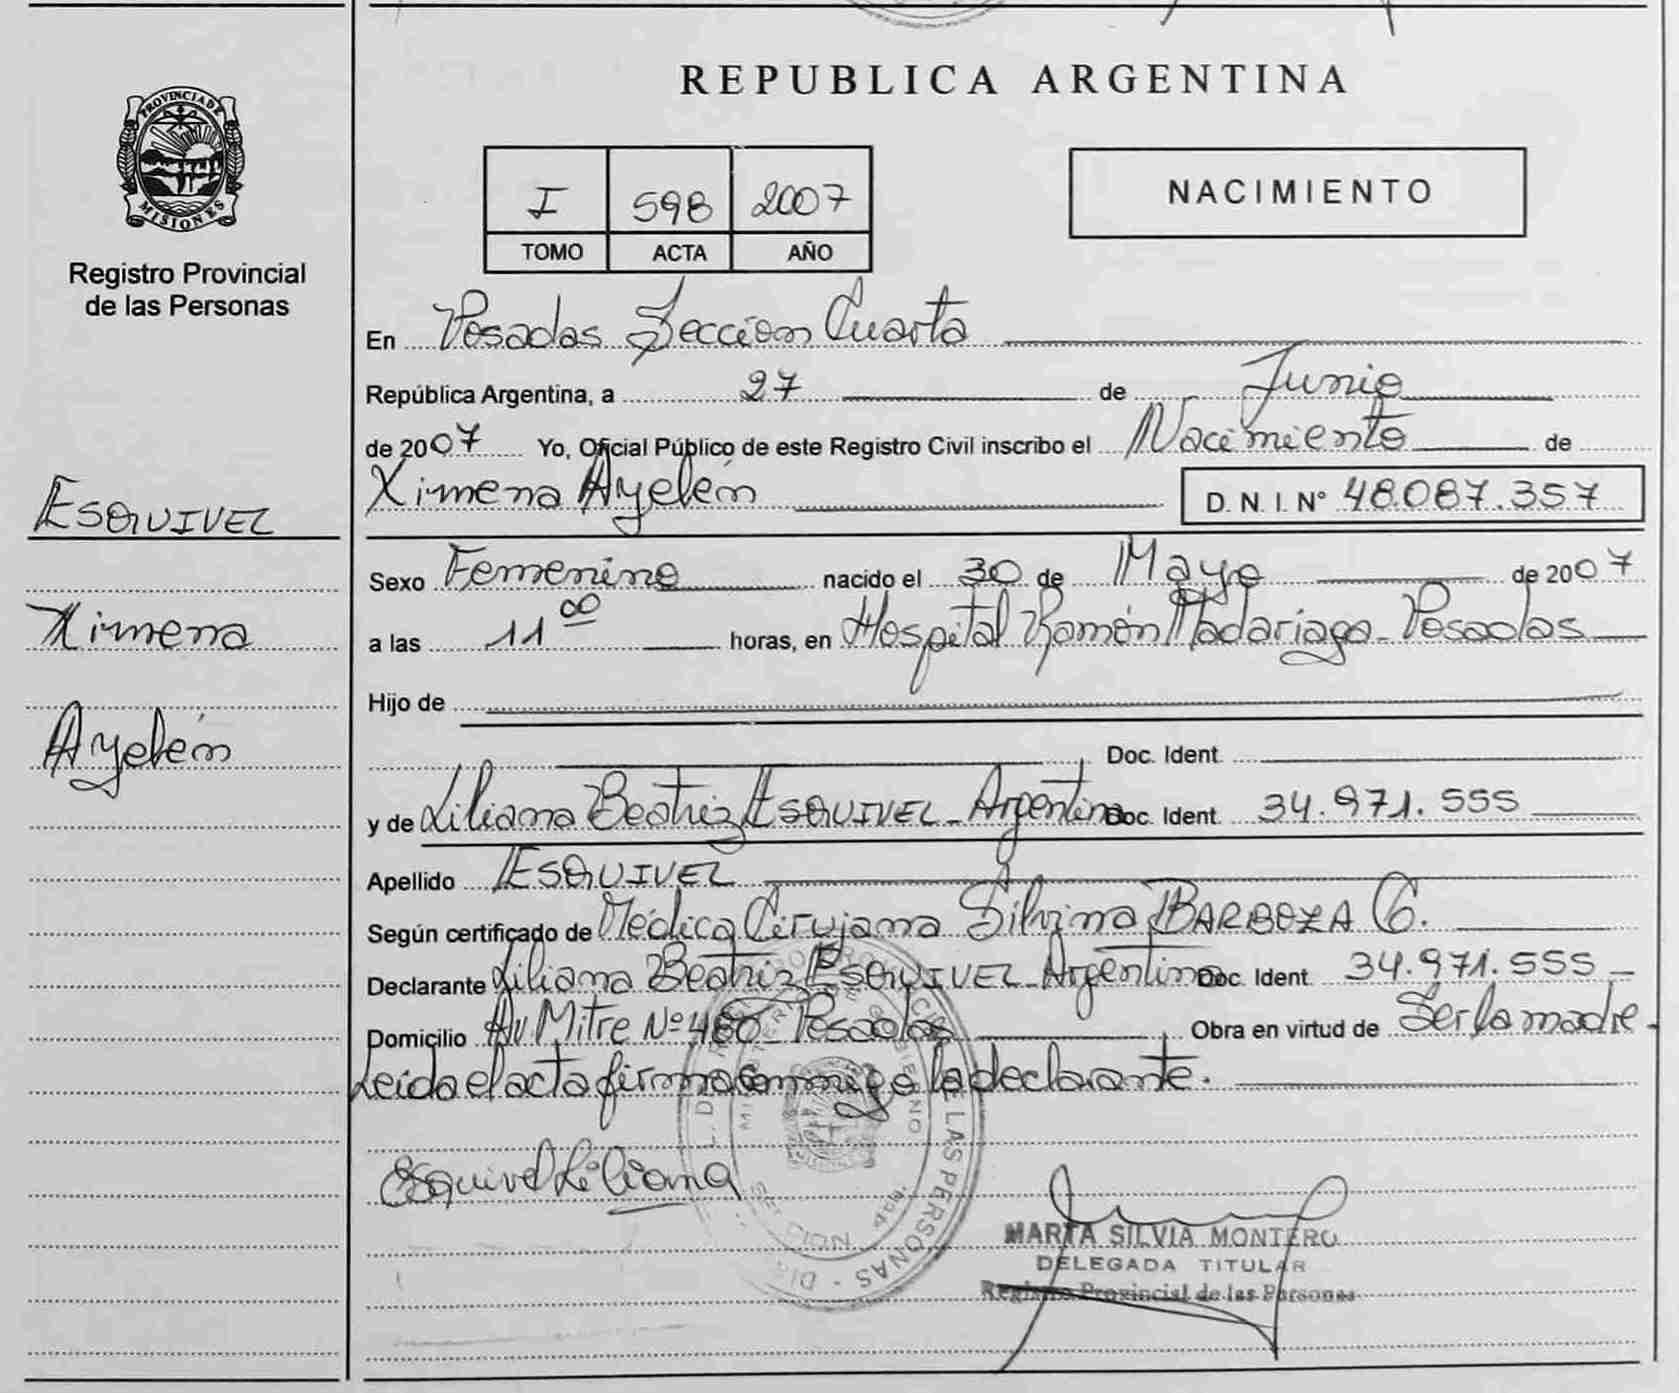 PROVINCIA DE
MISIONES
Registro Provincial
de las Personas
ESQUIVEL
Ximena
Ayelén
REPUBLICA ARGENTINA
I 598 2007
TOMO ACTA AÑO
NACIMIENTO
En Posadas Sección Cuarta
República Argentina, a 27 de Junio
de 2007 Yo, Oficial Público de este Registro Civil inscribo el Nacimiento de
Ximena Ayelén D. N. I. Nº 48.087.357
Sexo Femenino nacido el 30 de Mayo de 2007
a las 11 00 horas, en Hospital Ramón Madariaga - Posadas
Hijo de
Doc. Ident.
y de Liliana Beatriz ESQUIVEL - Argentina Doc. Ident. 34.971.555
Apellido ESQUIVEL
Según certificado de Médica Cirujana Silvina BARBOZA G.
Declarante Liliana Beatriz ESQUIVEL - Argentina Doc. Ident. 34.971.555
Domicilio Av. Mitre Nº 480 - Posadas Obra en virtud de Ser la madre.
Leída el acta firma conmigo la declarante.
Esquivel Liliana
MARTA SILVIA MONTERO
DELEGADA TITULAR
Registro Provincial de las Personas
DE LAS PERSONAS